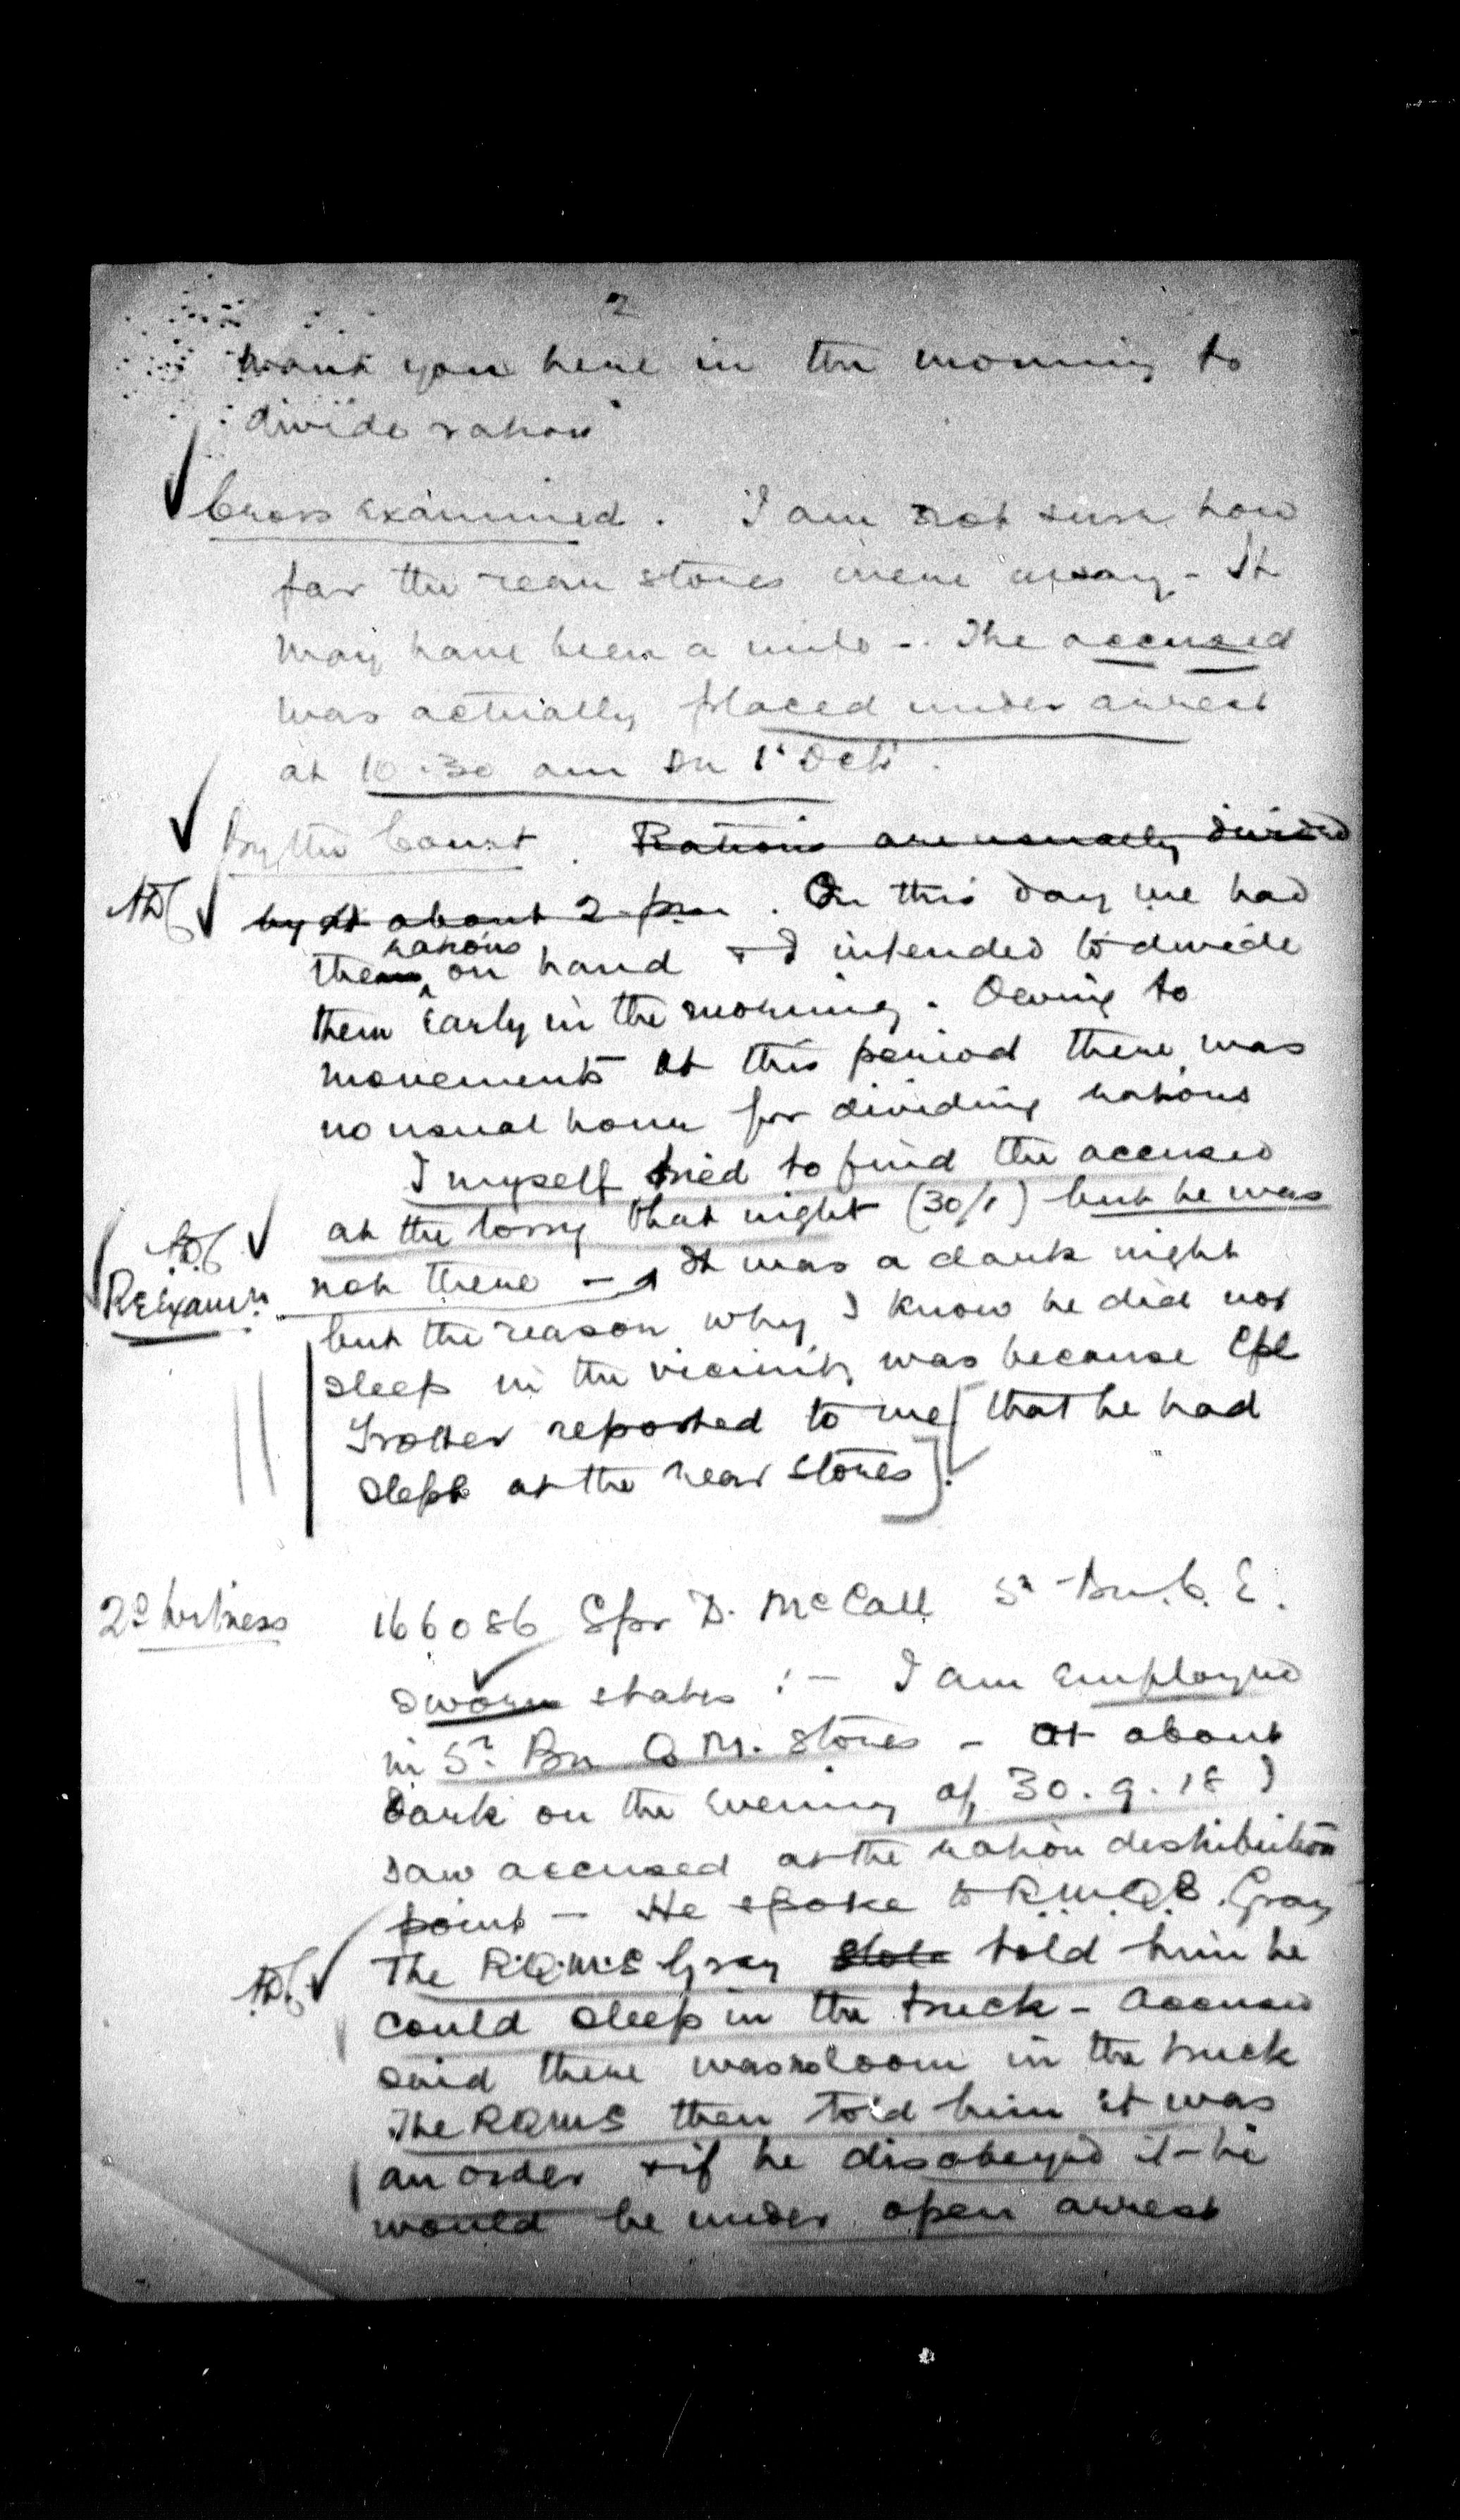 2
want you here in the morning to
divide rations"
Cross examined. I am not sure how
far the rear stores were away - It
may have been a mile -. The accused
was actually placed under arrest
at 10.30 am on 1st Oct.
By the Court. Rations are usually divided
by at about 2 pm. On this day we had
the rations on hand & I intended to divide
them early in the morning. Owing to
movements at this period there was
no usual hour for dividing rations
I myself tried to find the accused
at the lorry that night (30/1) but he was
not there - It was a dark night
Reexamn.
but the reason why I know he did not
sleep in the vicinity was because Cpl
Trotter reported to me [that he had
slept at the rear stores].
2d Witness 166086 Spr D. McCall 5th Bn. C. E.
sworn states :- I am employed
in 5th Bn Q M. Stores - at about
dark on the evening of 30.9.18 I
saw accused at the ration distribution
point - He spoke to R.M.Q.S. Gray
The R.Q.M.S Gray told him he
could sleep in the truck - accused
said there was no room in the truck
The RQMS then told him it was
an order & if he disobeyed it - he
would be under open arrest